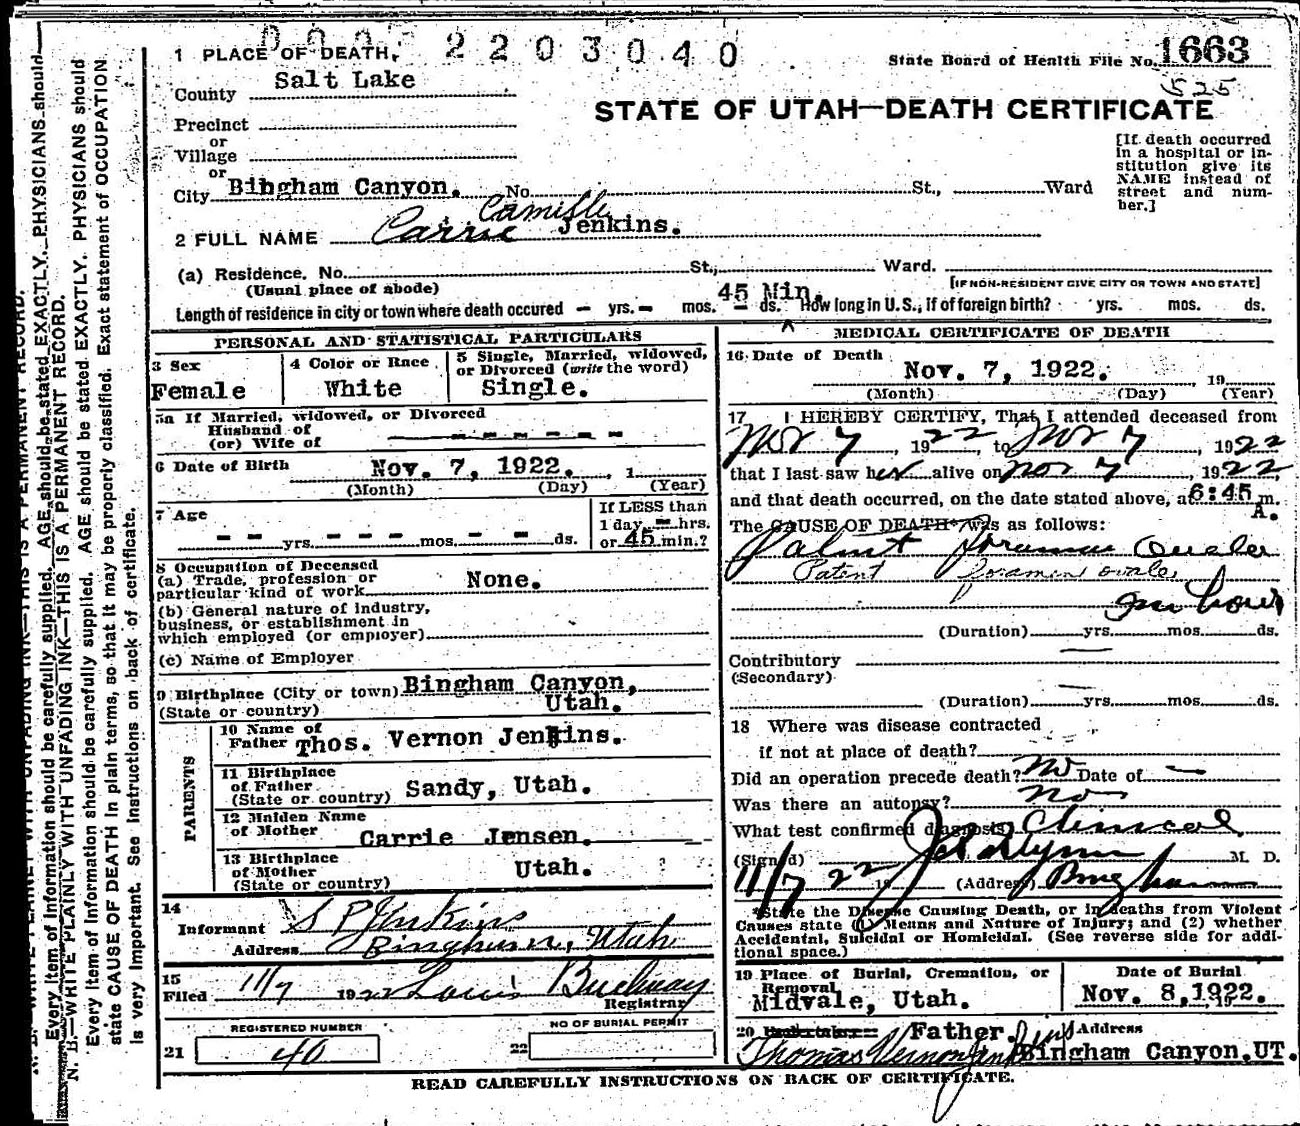 2203040
1 PLACE OF DEATH,
State Board of Health File No. 1663
525
County Salt Lake
STATE OF UTAH—DEATH CERTIFICATE
Precinct
or
Village
or
City Bihgham Canyon. No. St., Ward
[If death occurred
in a hospital or in-
stitution give its
NAME instead of
street and num-
ber.]
Camille
2 FULL NAME Carrie Jenkins.
(a) Residence. No. St., Ward.
(Usual place of abode)
[IF NON-RESIDENT GIVE CITY OR TOWN AND STATE]
45 Min.
Length of residence in city or town where death occured — yrs. — mos. — ds. How long in U.S., if of foreign birth? yrs. mos. ds.
PERSONAL AND STATISTICAL PARTICULARS
3 Sex
Female
4 Color or Race
White
5 Single, Married, widowed,
or Divorced (write the word)
Single.
5a If Married, widowed, or Divorced
Husband of
(or) Wife of
6 Date of Birth Nov. 7, 1922. , 1
(Month) (Day) (Year)
7 Age
yrs. mos. ds.
If LESS than
1 day, — hrs.
or 45 min.?
8 Occupation of Deceased
(a) Trade, profession or
particular kind of work None.
(b) General nature of industry,
business, or establishment in
which employed (or employer)
(c) Name of Employer
9 Birthplace (City or town) Bingham Canyon,
(State or country) Utah.
PARENTS
10 Name of
Father Thos. Vernon Jenkins.
11 Birthplace
of Father
(State or country) Sandy, Utah.
12 Maiden Name
of Mother Carrie Jensen.
13 Birthplace
of Mother
(State or country) Utah.
14
Informant S P Jenkins
Address Bingham, Utah
15
Filed 11/7 1922 Louis Buchman
Registrar
REGISTERED NUMBER
21 40
NO OF BURIAL PERMIT
22
MEDICAL CERTIFICATE OF DEATH
16 Date of Death
Nov. 7, 1922. , 19
(Month) (Day) (Year)
17 I HEREBY CERTIFY, That I attended deceased from
Nov 7 , 1922, to Nov 7 , 1922
that I last saw her alive on Nov 7 , 1922,
and that death occurred, on the date stated above, at 6:45 m.
A.
The CAUSE OF DEATH* was as follows:
Patent Foramen Ovale
Patent foramen ovale,
hour
(Duration) yrs. mos. ds.
Contributory
(Secondary)
(Duration) yrs. mos. ds.
18 Where was disease contracted
if not at place of death?
Did an operation precede death? No Date of —
Was there an autopsy? no
What test confirmed diagnosis Clinical
(Signed) M. D.
11/7 22 19 (Address) Bingham
*State the Disease Causing Death, or in deaths from Violent
Causes state (1) Means and Nature of Injury; and (2) whether
Accidental, Suicidal or Homicidal. (See reverse side for addi-
tional space.)
19 Place of Burial, Cremation, or
Removal
Midvale, Utah.
Date of Burial
Nov. 8, 1922. 19
20 Undertaker Father. Address
Thomas Vernon Jenkins Bingham Canyon. UT.
READ CAREFULLY INSTRUCTIONS ON BACK OF CERTIFICATE.
N. B.—WRITE PLAINLY WITH UNFADING INK—THIS IS A PERMANENT RECORD.
Every item of Information should be carefully supplied. AGE should be stated EXACTLY. PHYSICIANS should
N. B.—WRITE PLAINLY WITH UNFADING INK—THIS IS A PERMANENT RECORD.
Every item of Information should be carefully supplied. AGE should be stated EXACTLY. PHYSICIANS should
state CAUSE OF DEATH in plain terms, so that it may be properly classified. Exact statement of OCCUPATION
is very important. See Instructions on back of certificate.